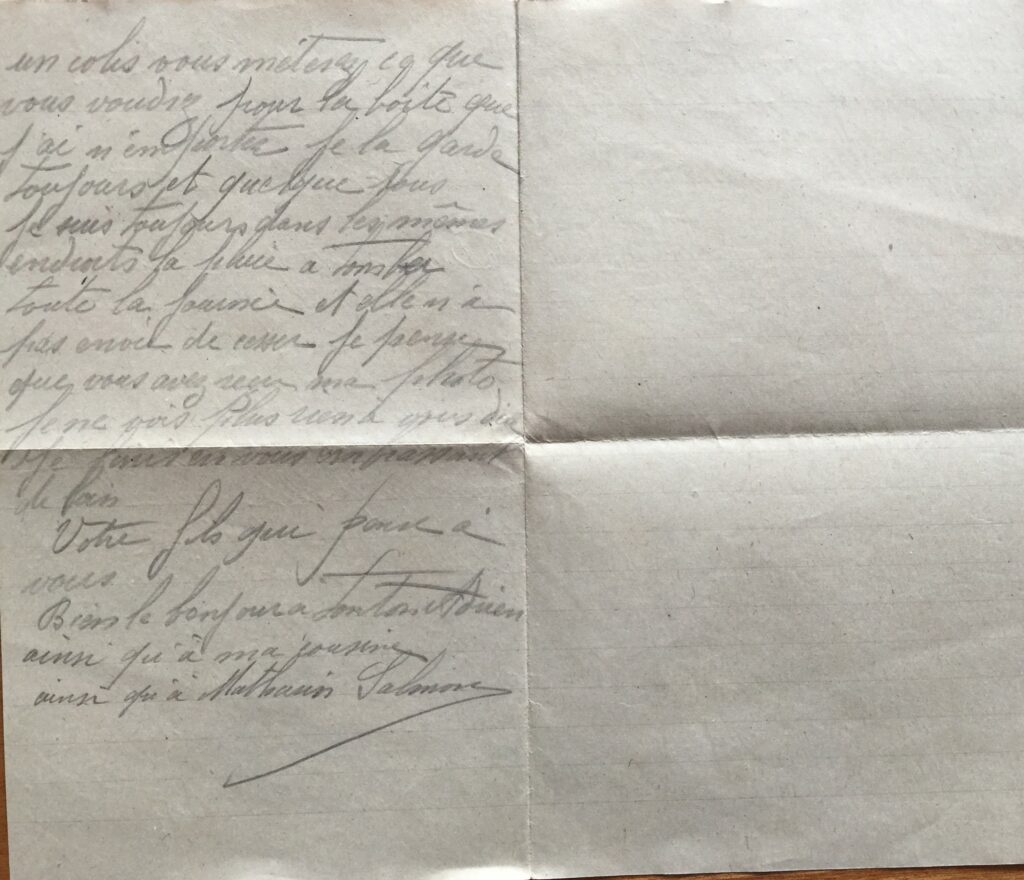 un colis vous méteray ce que
vous voudrez pour la boite que
j'ai n'en porter je la garde
toujours et quelque jours
je suis toujours dans les mêmes
endroits la pluie a tomber
toute la journée et elle n'à
pas envie de cesser je pense
que vous avez reçu ma photo
je ne vois plus rien à vous dire
Je finis en vous embrassant
de loin
Votre fils qui pense à
vous
Bien le bonjour a tonton
ainsi qu'à ma cousine
ainsi qu'à Mathurin Salmon